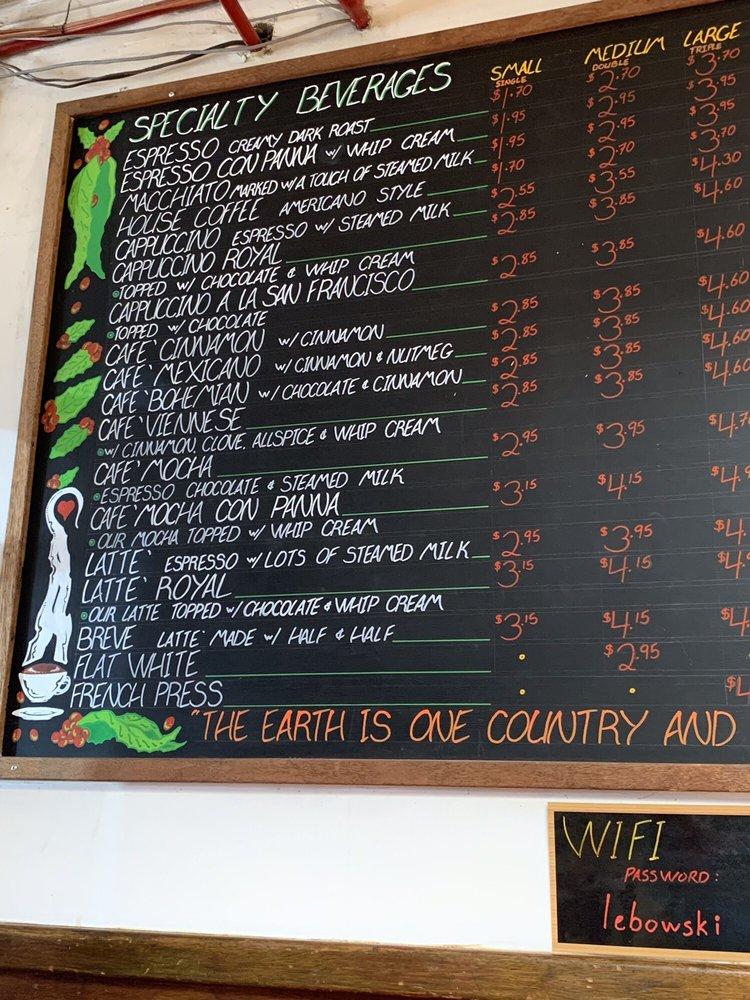 SPECIALTY BEVERAGES SMALL MEDIUM LARGE
SINGLE DOUBLE TRIPLE
ESPRESSO CREAMY DARK ROAST $1.70 $2.70 $3.70
ESPRESSO CON PANNA w/ WHIP CREAM $1.95 $2.95 $3.95
MACCHIATO MARKED w/ A TOUCH OF STEAMED MILK $1.95 $2.95 $3.95
HOUSE COFFEE AMERICANO STYLE $1.70 $2.70 $3.70
CAPPUCCINO ESPRESSO w/ STEAMED MILK $2.55 $3.55 $4.30
CAPPUCCINO ROYAL $2.85 $3.85 $4.60
TOPPED w/ CHOCOLATE & WHIP CREAM
CAPPUCCINO A LA SAN FRANCISCO $2.85 $3.85 $4.60
TOPPED w/ CHOCOLATE
CAFE` CINNAMON w/ CINNAMON $2.85 $3.85 $4.60
CAFE` MEXICANO w/ CINNAMON & NUTMEG $2.85 $3.85 $4.60
CAFE` BOHEMIAN w/ CHOCOLATE & CINNAMON $2.85 $3.85 $4.60
CAFE` VIENNESE $2.85 $3.85 $4.60
w/ CINNAMON, CLOVE, ALLSPICE & WHIP CREAM
CAFE` MOCHA $2.95 $3.95
ESPRESSO CHOCOLATE & STEAMED MILK
CAFE` MOCHA CON PANNA $3.15 $4.15
OUR MOCHA TOPPED w/ WHIP CREAM
LATTE` ESPRESSO w/ LOTS OF STEAMED MILK $2.95 $3.95
LATTE` ROYAL $3.15 $4.15
OUR LATTE TOPPED w/ CHOCOLATE & WHIP CREAM
BREVE LATTE` MADE w/ HALF & HALF $3.15 $4.15
FLAT WHITE $2.95
FRENCH PRESS
"THE EARTH IS ONE COUNTRY AND
WIFI
PASSWORD:
lebowski